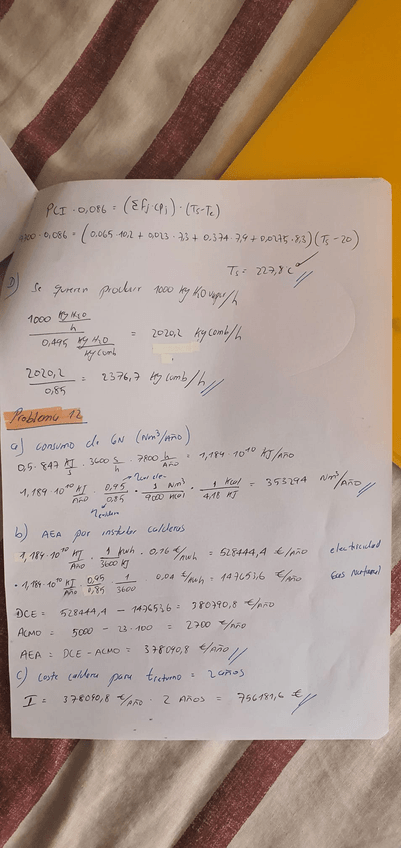 PCI · 0,086 = (Σfj · cpj) · (Ts-Te)
9300 · 0,086 = (0,065 · 10,2 + 0,023 · 7,3 + 0,374 · 7,9 + 0,0275 · 8,3) (Ts - 20)
Ts = 227,8 C
D) Se quieren producir 1000 Kg H2O vapor/h
1000 Kg H2O/h / 0,495 Kg H2O/Kg Comb = 2020,2 Kg Comb/h
2020,2 / 0,85 = 2376,7 Kg comb/h
Problema 12
a) Consumo de GN (Nm³/Año)
0,5 · 847 KJ/s · 3600 s/h · 7800 h/Año = 1,189 · 10^10 KJ/Año
1,189 · 10^10 KJ/Año · 0,95/0,85 · 1 Nm³/9000 Kcal · 1 Kcal/4,18 KJ = 353294 Nm³/Año
b) AEA por instalar calderas
1,189 · 10^10 KJ/Año · 1 Kwh/3600 KJ · 0,16 €/Kwh = 528444,4 €/Año electricidad
· 1,189 · 10^10 KJ/Año · 0,95/0,85 · 1/3600 · 0,04 €/Kwh = 147653,6 €/Año Gas Natural
DCE = 528444,4 - 147653,6 = 380790,8 €/Año
ACMO = 5000 - 23 · 100 = 2700 €/Año
AEA = DCE - ACMO = 378090,8 €/Año
c) Coste caldera para t retorno = 2 años
I = 378090,8 €/Año · 2 Años = 756181,6 €